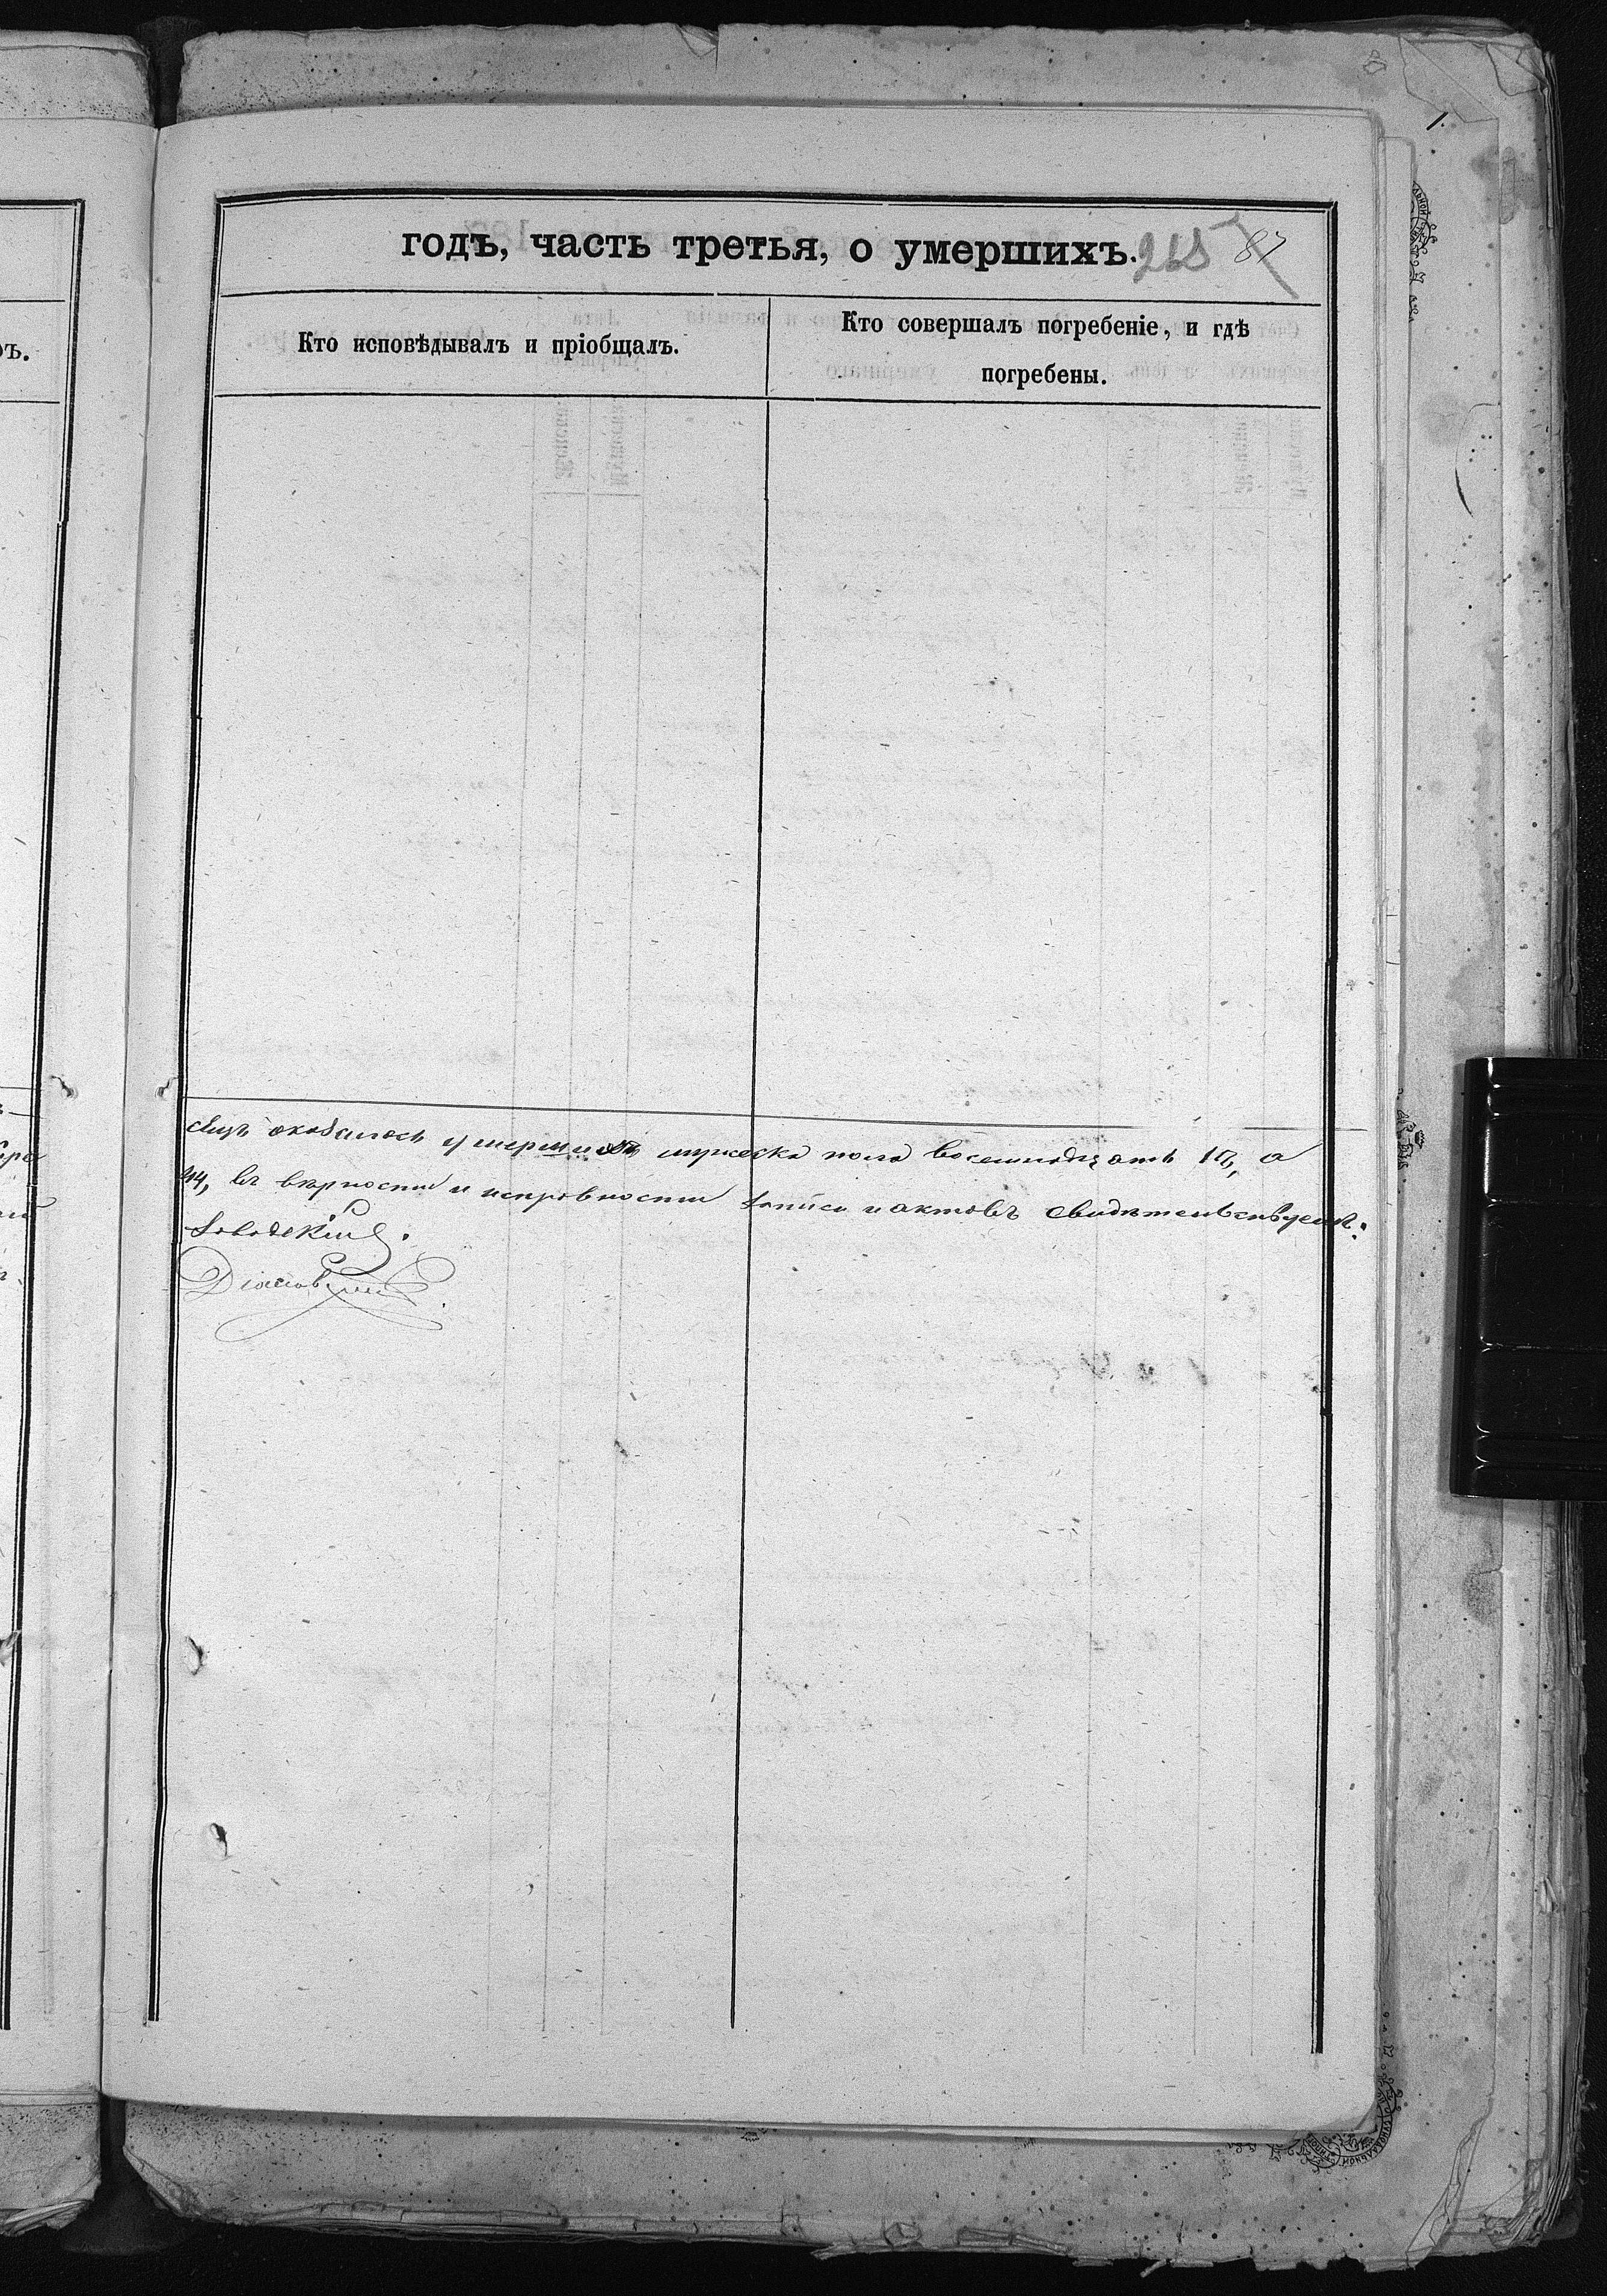 годъ, часть третья, о умершихъ. 265 87
Кто исповѣдывалъ и пріобщалъ.
Кто совершалъ погребеніе, и гдѣ
погребены.
оказалось умершихъ мужеска пола восемнадцать 18, а
44, въ вѣрности и исправности записи и актовъ свидѣтельствуемъ.